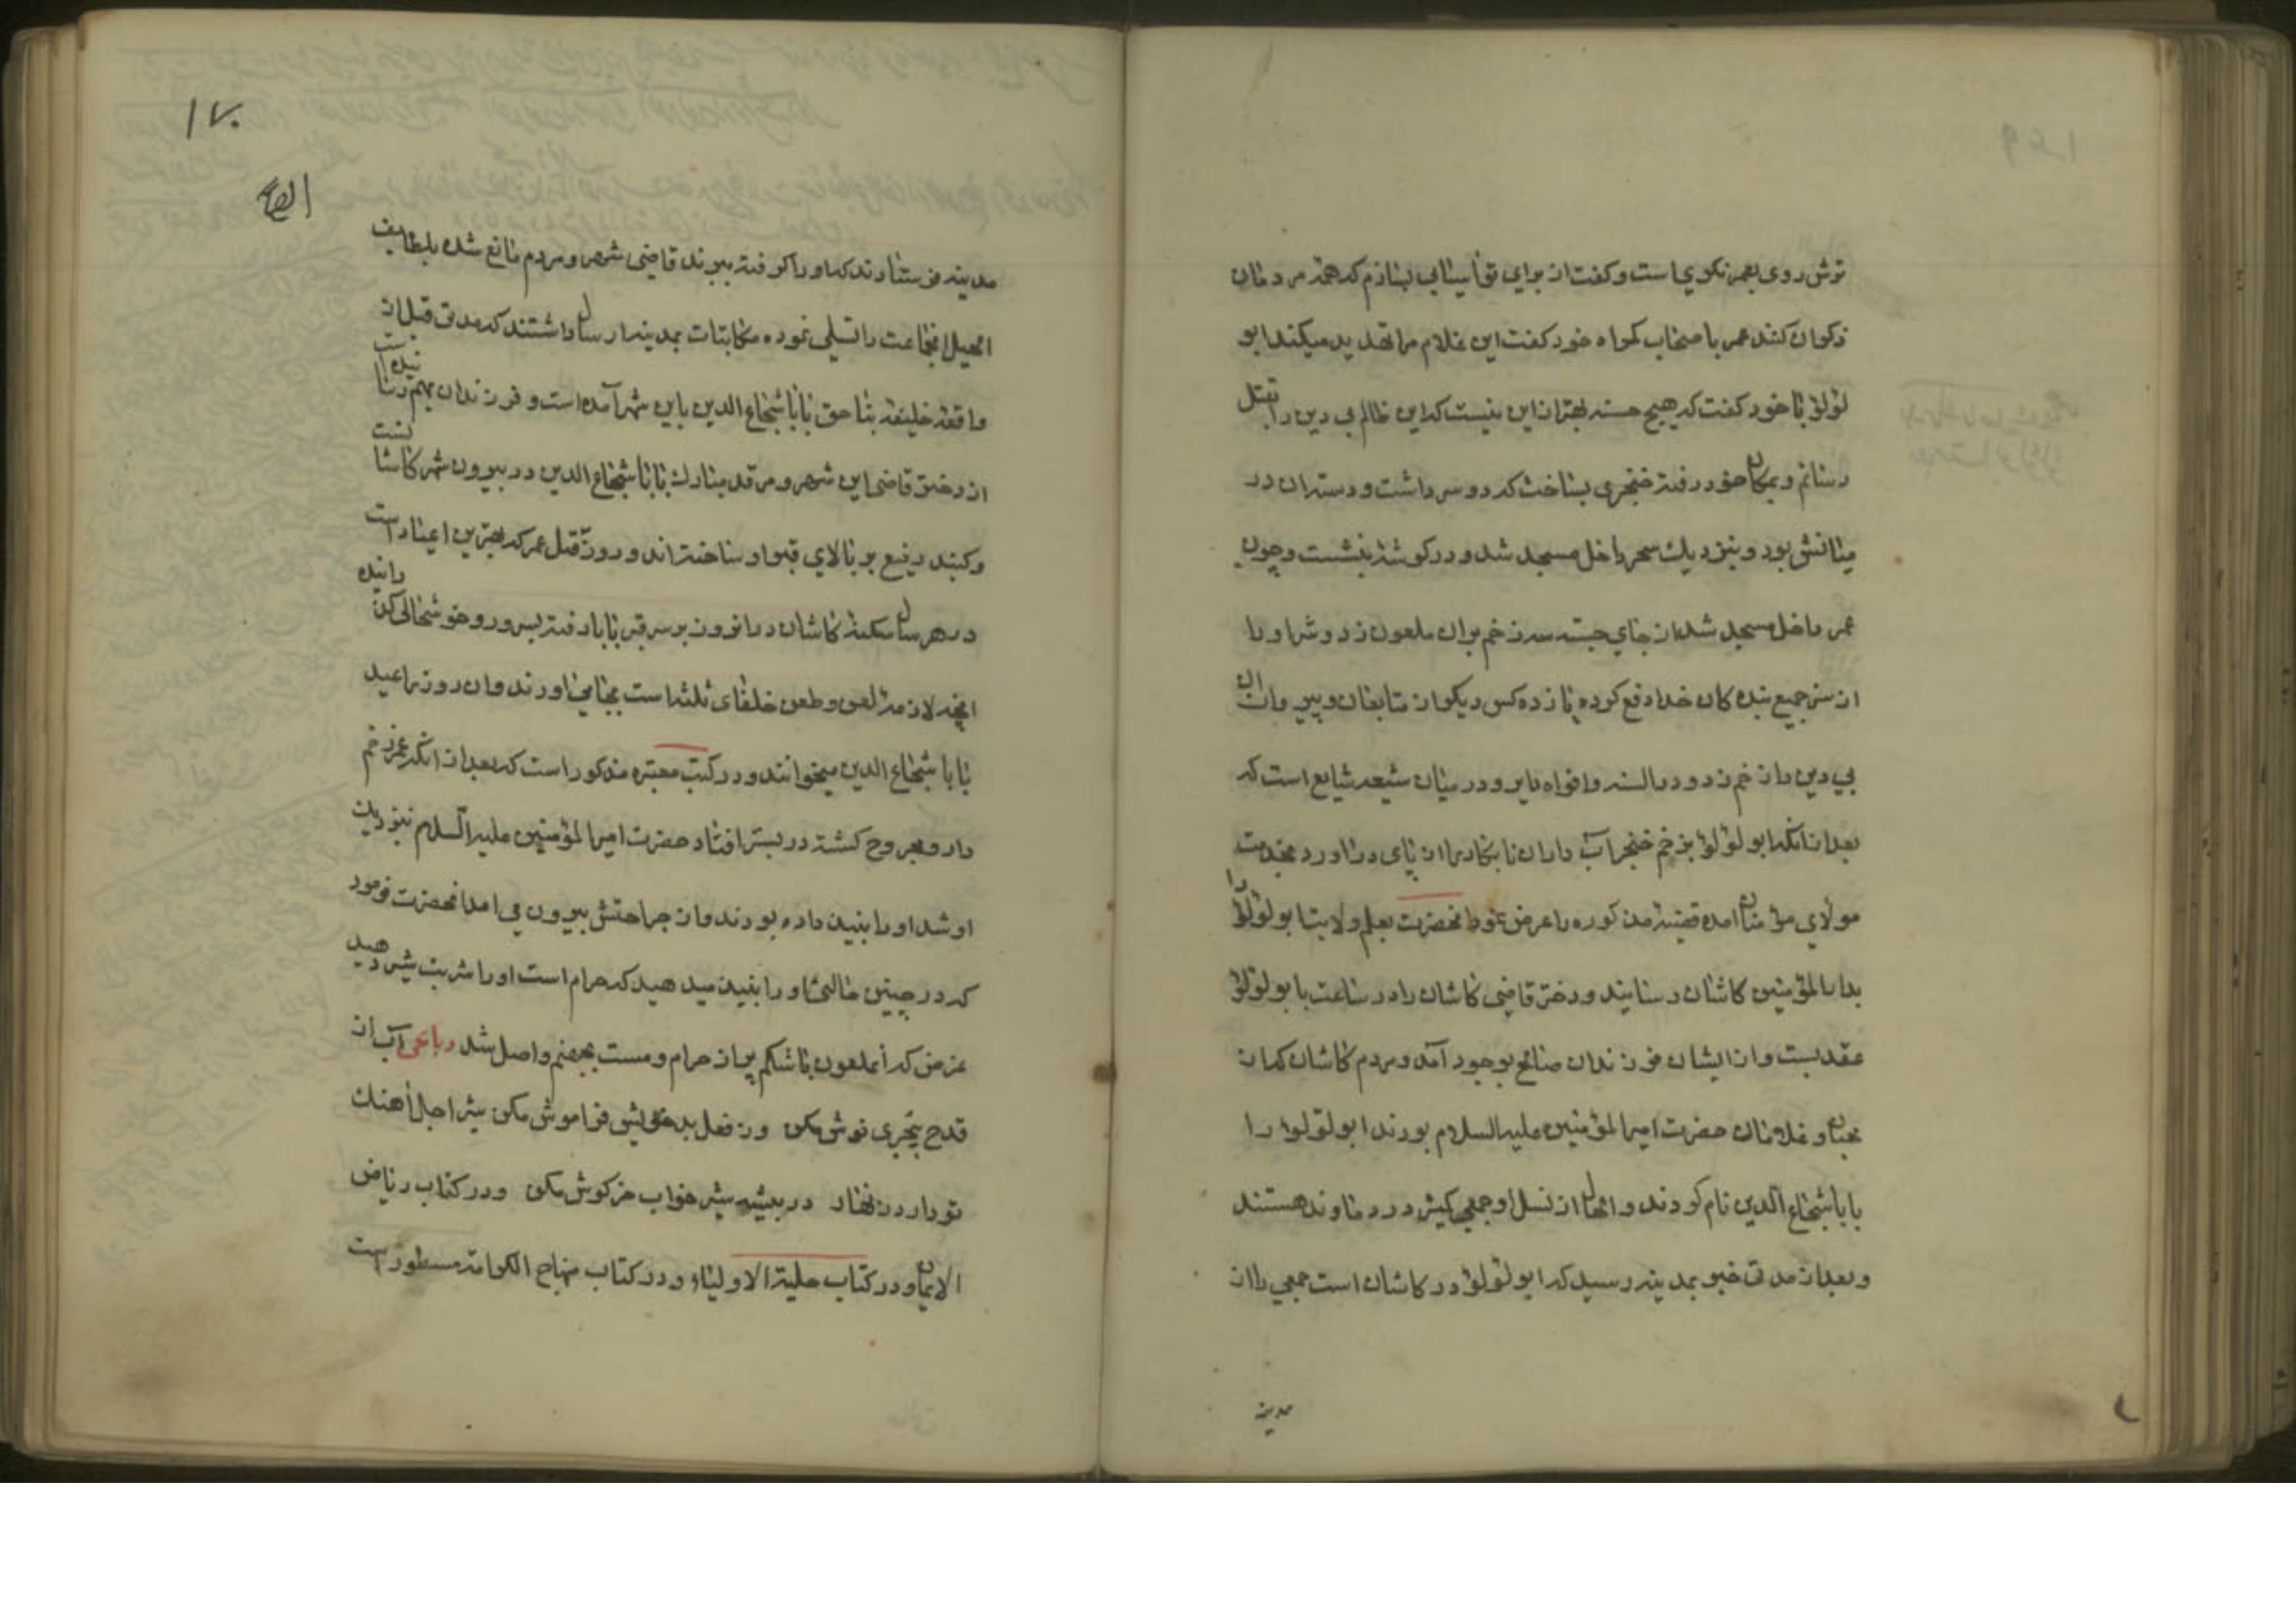 ترش روی بعمر نکویست و کفت از برای تو اسیابی بسازم که همه مردمان
ذکران کنند عمر با صحاب کمراه خود کفت این غلام مرا تهدید میکند ابو
لؤلؤ با خود کفت که هیچ حسنه بهتر از این نیست که این ظالم بی دین را بقتل
رسانم و بمکان خود رفته خنجری بساخت که دو سر داشت و دسته ان در
میانش بود و بنزدیک سحر داخل مسجد شد و در کوشه بنشست و چون
عمر داخل مسجد شد از جای جسته سه زخم بران ملعون زد و شر او را
از سر جمیع بنده کان خدا دفع کرده یازده کس دیکر از متابعان و پیروان ان
بی دین را زخم زد و در السنه و افواه دایر و در میان شیعه شایع است که
بعد از انکه ابو لؤلؤ بزخم خنجر آب دار ان نابکار را از پای در اورد بخدمت
مولای مؤمنان امده قضیه مذکوره را عرض نمود انحضرت بعلم ولایت ابو لؤلؤ را
بدار المؤمنین کاشان رسانیند و دختر قاضی کاشان را در ساعت با بو لؤلؤ
عقد بست و از ایشان فرزندان صالح بوجود آمد و مردم کاشان کمان
محبان و غلامان حضرت امیر المؤمنین علیه السلام بودند ابو لؤلؤ را
بابا شجاع الدین نام کردند و الحال از نسل او جمعی کثیر در دماوند هستند
و بعد از مدتی خبر بمدینه رسید که ابو لؤلؤ در کاشان است جمعی را از
مدینه
۱۷۰
مدینه فرستادند که او را کرفته ببرند قاضی شهر و مردم مانع شده بلطایف
الحیل انجماعت را تسلی نموده مکاتبات بمدینه ارسال داشتند که مدتی قبل از
واقعه خلیفه بنا حق بابا شجاع الدین باین شهر آمده است و فرزندان بهم رسانیده است
از دختر قاضی این شهر و مرقد مبارک بابا شجاع الدین در بیرون شهر کاشانست
و کنبد رفیع بر بالای قبر او ساخته اند و روز قتل عمر که بهترین اعیاد است
در هر سال سکنه کاشان در انروز بر سر قبر بابا رفته بسرور و خوشحالی کذرانیده
انچه لازمه لعن و طعن خلفای ثلثه است بجای می اورند و ان روز را عید
بابا شجاع الدین میخوانند و در کتب معتبره مذکور است که بعد از انکه عمر زخم
دار و مجروح کشته در بستر افتاد حضرت امیر المؤمنین علیه السلام بنزدیک
او شد او را بنبید داده بودند و از جراحتش بیرون می امد انحضرت فرمود
که در چنین حالی او را بنبید میدهید که حرام است او را شربت شیر دهید
غرض که آن ملعون با شکم پر از حرام و مست بجهنم واصل شد رباعی آب از
قدح بیخبری نوش مکن وز فعل بد خویش فراموش مکن شیر اجل آهنک
تو دارد زنهار در بیشه شیر خواب خرکوش مکن و در کتاب ریاض
الایمان و در کتاب حلیة الاولیاء و در کتاب منهاج الکرامه مسطور است